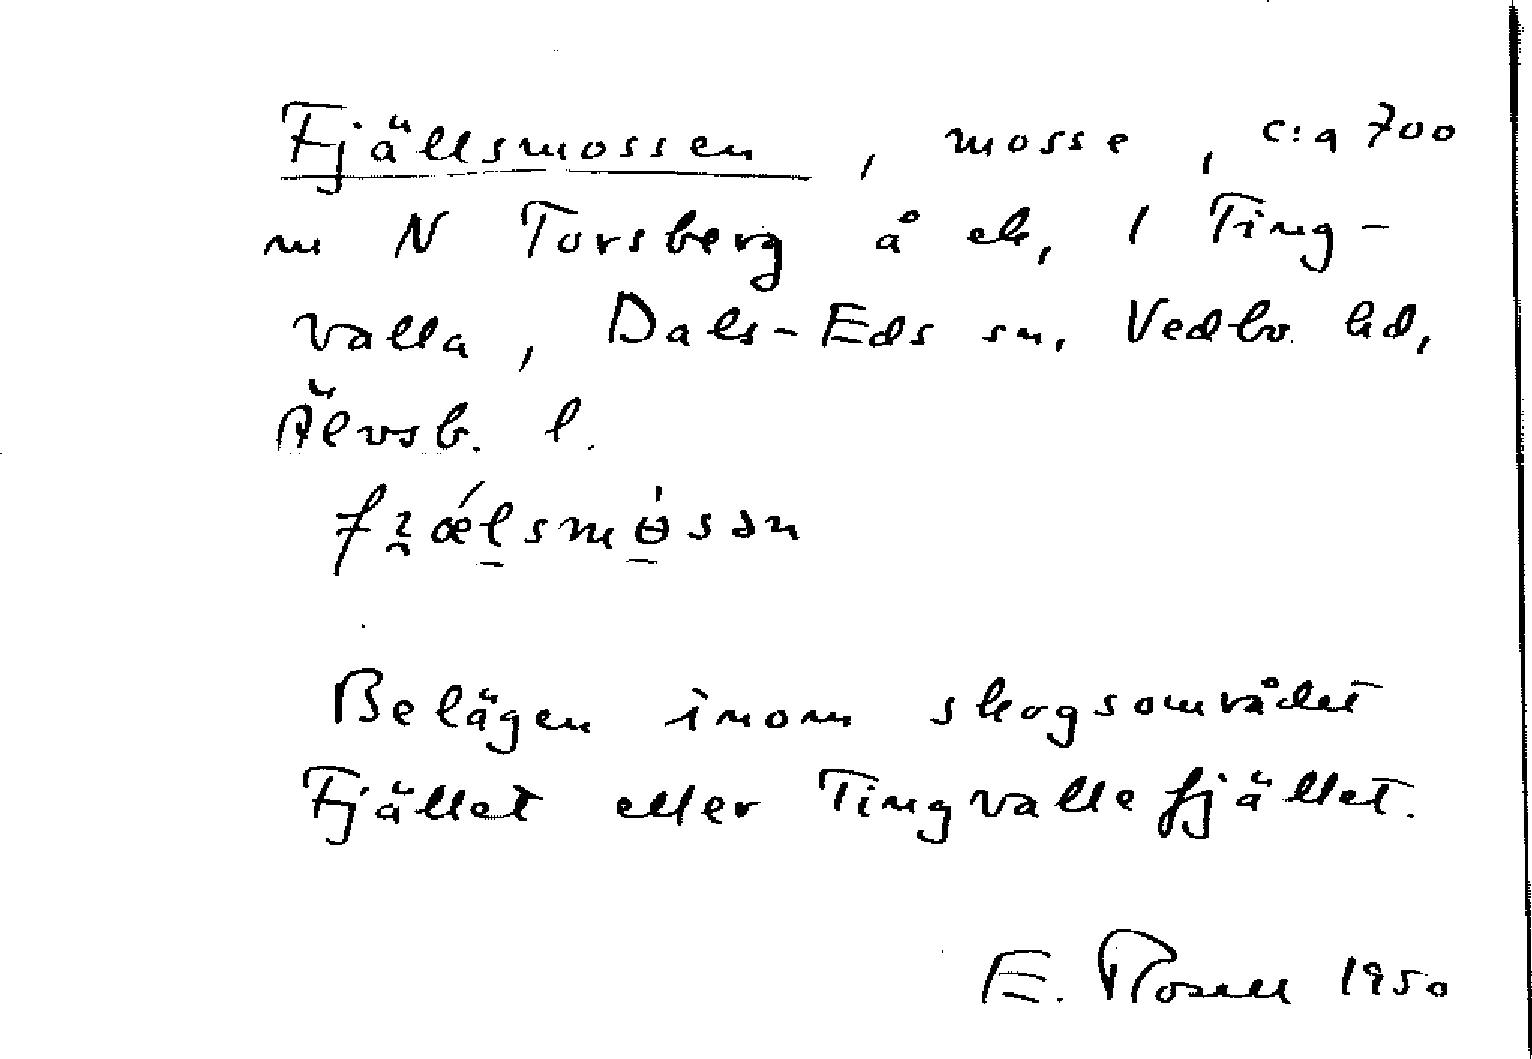 Fjällsmossen, mosse, c:a 700
m N Torsberg å ek, 1 Ting-
valla, Dals-Eds sn, Vedbo hd,
Älvsb. l.
Belägen inom skogsområdet
Fjället eller Tingvallefjället.
E. Rosell 1950